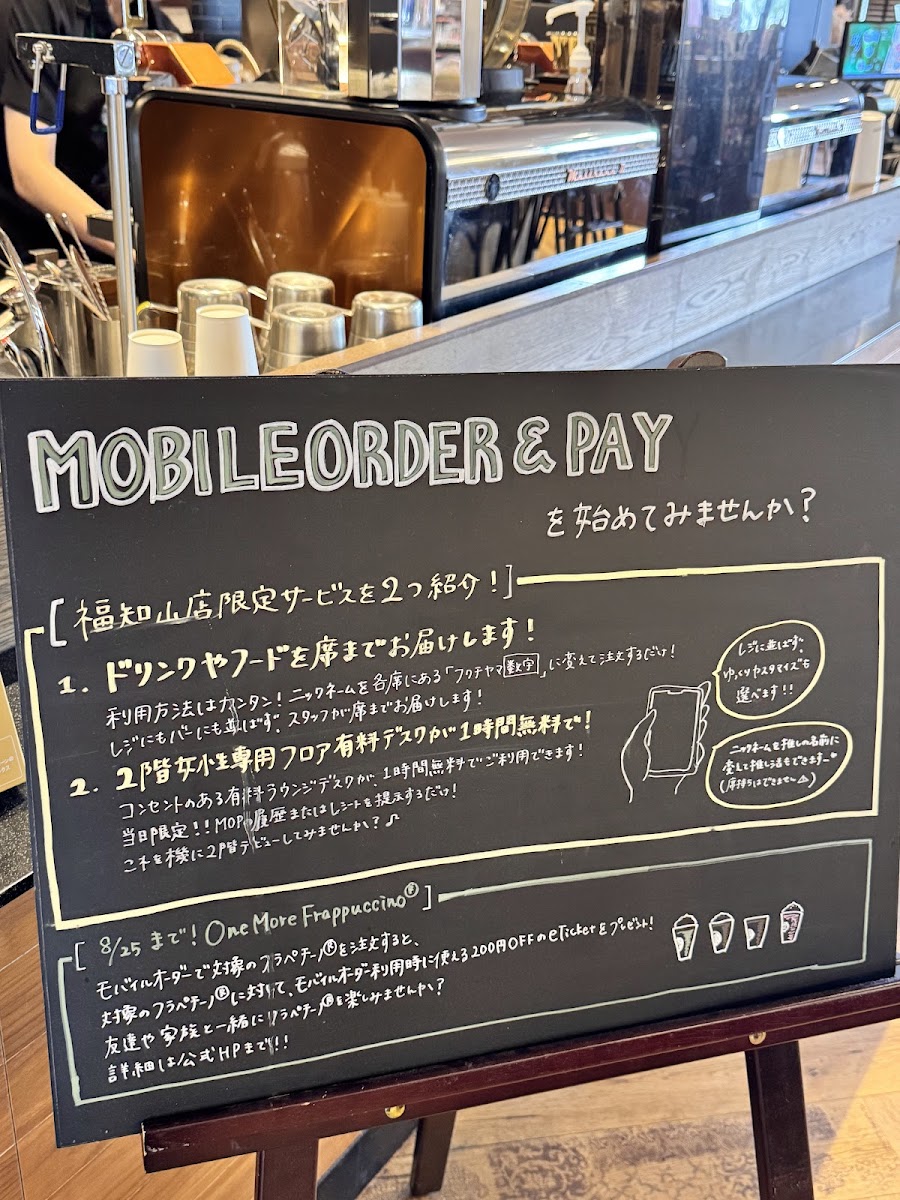 MOBILE ORDER & PAY
を始めてみませんか？
[福知山店限定サービスを2つ紹介！]
1. ドリンクやフードを席までお届けします！
利用方法はカンタン！ニックネームを各席にある「フクチヤマ数字」に変えて注文するだけ！
レジにもバーにも並ばず、スタッフが席までお届けします！
2. 2階女性専用フロア有料デスクが1時間無料で！
コンセントのある有料ラウンジデスクが、1時間無料でご利用できます！
当日限定！！MOPの履歴またはレシートを提示するだけ！
これを機に2階デビューしてみませんか？♪
レジに並ばず、
ゆっくりカスタマイズも
選べます！！
ニックネームを推しの名前に
変えて推し活もできます
(席持ちはできませ〜ん⚠)
[8/25まで！One More Frappuccino®]
モバイルオーダーで対象のフラペチーノ®を注文すると、
対象のフラペチーノ®に対して、モバイルオーダー利用時に使える200円OFFのeTicketをプレゼント！
友達や家族と一緒にフラペチーノ®を楽しみませんか？
詳細は公式HPまで！！